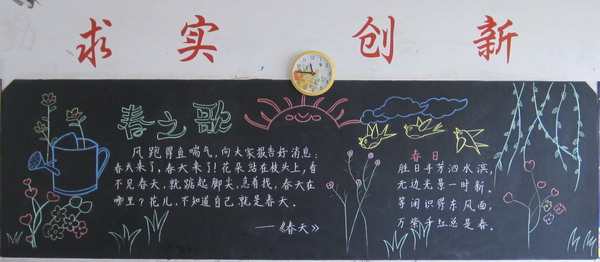 求实 创新
春之歌
风跑得直喘气，向大家报告好消息：
春天来了，春天来了！花朵站在枝头上，看
不见春天，就踮起脚尖，急着找，春天在
哪里？花儿，不知道自己，就是春天。
——《春天》
春日
胜日寻芳泗水滨，
无边光景一时新。
等闲识得东风面，
万紫千红总是春。